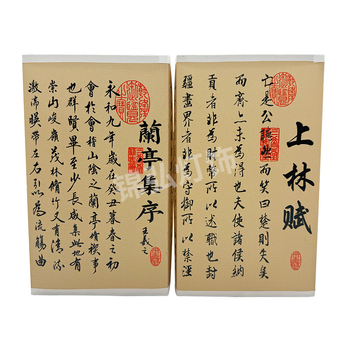 上林賦
亡是公聽然而笑曰楚則失矣
而齊亦未為得也夫使諸侯納
貢者非為財幣所以述職也封
疆畫界者非為守御所以禁淫
蘭亭集序
王羲之
永和九年歲在癸丑暮春之初
會於會稽山陰之蘭亭脩禊事
也群賢畢至少長咸集此地有
崇山峻嶺茂林脩竹又有清流
激湍暎帶左右引以為流觴曲
锦弘灯饰